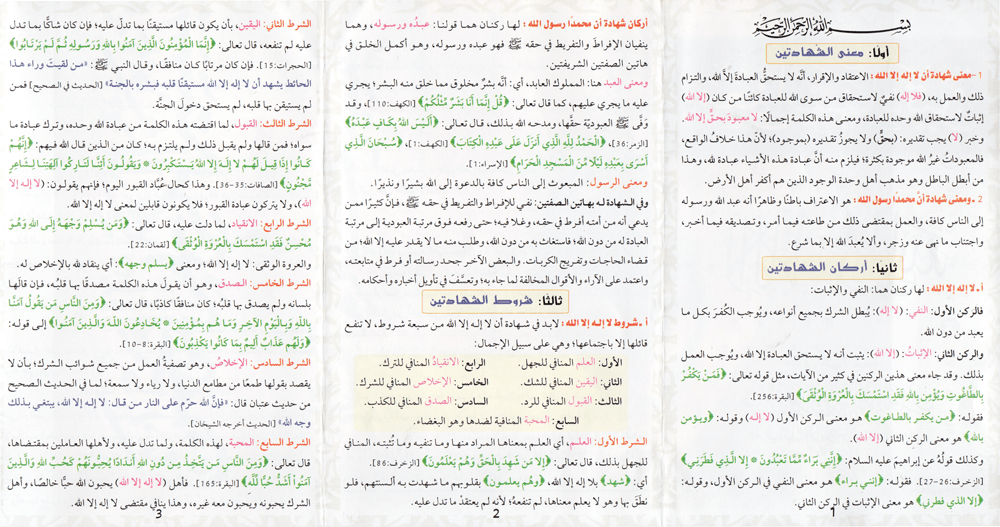 بسم الله الرحمن الرحيم
أولًا: معنى الشهادتين
1 -معنى شهادة أن لا إله إلا الله : الاعتقاد والإقرار، أنَّه لا يستحقُّ العبادة إلَّا الله، والتزام
ذلك والعمل به، (فلا إله) نفيٌ لاستحقاق من سوى الله للعبادة كائنًا من كـان (إلا الله)
إثباتٌ لاستحقاق الله وحده للعبادة، ومعنى هذه الكلمة إجمالًا: لا معبودَ بحقٍّ إلا الله.
وخبر (لا) يجب تقديره: (بحقٍّ) ولا يجوزُ تقديره (بموجود)؛ لأنّ هذا خلافُ الواقع،
فالمعبوداتُ غيرُ الله موجودة بكثرة؛ فيلزم منه أنَّ عبادة هذه الأشياء عبادة لله، وهذا
من أبطل الباطل وهو مذهب أهل وحدة الوجود الذين هم أكفر أهل الأرض.
2 ـ ومعنى شهادة أنَّ محمدًا رسول الله : هو الاعتراف باطنًا وظاهرًا أنه عبد الله ورسوله
إلى الناس كافة، والعمل بمقتضى ذلك من طاعته فيما أمر، وتصديقه فيما أخبر،
واجتناب ما نهى عنه وزجر، وألا يُعبدَ الله إلا بما شرع.
ثانيًا: أركان الشهادتين
أ ـ لا إله إلا الله : لها ركنان هما: النفي والإثبات:
فالركن الأول: النفي: (لا إله): يُبطل الشرك بجميع أنواعه، ويُوجب الكُفرَ بكل ما
يعبد من دون الله.
والركن الثاني: الإثباتُ: (إلا الله): يثبت أنه لا يستحق العبادة إلا الله، ويُوجب العمل
بذلك. وقد جاء معنى هذين الركنين في كثير من الآيات، مثل قوله تعالى: ﴿فَمَنْ يَكْفُرْ
بِالطَّاغُوتِ وَيُؤْمِن بِاللَّهِ فَقَدِ اسْتَمْسَكَ بِالْعُرْوَةِ الْوُثْقَى﴾ [البقرة:256].
فقوله: ﴿من يكفر بالطاغوت﴾ هو معنى الركن الأول (لا إله) وقوله: ﴿ويؤمن
بالله﴾ هو معنى الركن الثاني (إلا الله).
وكذلك قولُهُ عن إبراهيم عليه السلام: ﴿إِنَّنِي بَرَاءٌ مِّمَّا تَعْبُدُونَ * إِلَّا الَّذِي فَطَرَنِي﴾
[الزخرف:26-27]. فقولُه: ﴿إنني براء﴾ هو معنى النفي في الركن الأول، وقولُه:
﴿إلا الذي فطرني﴾ هو معنى الإثبات في الركن الثاني.
1
أركان شهادة أنَّ محمدًا رسول الله : لها ركنان هما قولنا: عبدُه ورسوله، وهما
ينفيان الإفراطَ والتفريط في حقه ﷺ فهو عبده ورسوله، وهو أكمل الخلق في
هاتين الصفتين الشريفتين.
ومعنى العبد هنا: المملوك العابد، أي: أنَّه بشرٌ مخلوق مما خلق منه البشر؛ يجري
عليه ما يجري عليهم، كما قال تعالى: ﴿قُلْ إِنَّمَا أَنَا بَشَرٌ مِّثْلُكُمْ﴾ [الكهف:110]، وقد
وَفَّى ﷺ العبوديّة حقَّها، ومدحه الله بذلك، قال تعالى: ﴿أَلَيْسَ اللَّهُ بِكَافٍ عَبْدَهُ﴾
[الزمر:36]، ﴿الْحَمْدُ لِلَّهِ الَّذِي أَنزَلَ عَلَى عَبْدِهِ الْكِتَابَ﴾ [الكهف:1]، ﴿سُبْحَانَ الَّذِي
أَسْرَى بِعَبْدِهِ لَيْلًا مِّنَ الْمَسْجِدِ الْحَرَامِ﴾ [الإسراء:1].
ومعنى الرسول: المبعوث إلى الناس كافة بالدعوة إلى الله بشيرًا ونذيرًا.
وفي الشهادة له بهاتين الصفتين: نفيٌ للإفراط والتفريط في حقه ﷺ، فإنَّ كثيرًا ممن
يدعي أنه من أمته أفرط في حقه، وغلا فيه؛ حتى رفعه فوق مرتبة العبودية إلى مرتبة
العبادة له من دون الله؛ فاستغاث به من دون الله، وطلب منه ما لا يقدر عليه إلا الله؛ من
قضاء الحاجات وتفريج الكربات. والبعض الآخر جحد رسالته أو فرط في متابعته،
واعتمد على الآراء والأقوال المخالفة لما جاء به؛ وتعسَّفَ في تأويل أخباره وأحكامه.
ثالثًا: شروط الشهادتين
أ ـ شروط لا إله إلا الله : لابد في شهادة أن لا إله إلا الله من سبعة شروط، لا تنفع
قائلها إلا باجتماعها؛ وهي على سبيل الإجمال:
الأول: العلم المنافي للجهل. الرابع: الانقيادُ المنافي للترك.
الثاني: اليقين المنافي للشك. الخامس: الإخلاص المنافي للشرك.
الثالث: القبول المنافي للرد. السادس: الصدق المنافي للكذب.
السابع: المحبة المنافية لضدها وهو البغضاء.
الشرط الأول: العلم، أي العلم بمعناها المراد منها وما تنفيه وما تُثبته، المنافي
للجهل بذلك، قال تعالى: ﴿إِلَّا مَن شَهِدَ بِالْحَقِّ وَهُمْ يَعْلَمُونَ﴾ [الزخرف:86].
أي: ﴿شهد﴾ بلا إله إلا الله، ﴿وهم يعلمون﴾ بقلوبهم ما شهدت به ألسنتهم، فلو
نطقَ بها وهو لا يعلم معناها، لم تنفعهُ؛ لأنه لم يعتقدْ ما تدل عليه.
2
الشرط الثاني: اليقين، بأن يكون قائلها مستيقنًا بما تدلّ عليه؛ فإن كان شاكًّا بما تدل
عليه لم تنفعه، قال تعالى: ﴿إِنَّمَا الْمُؤْمِنُونَ الَّذِينَ آمَنُوا بِاللَّهِ وَرَسُولِهِ ثُمَّ لَمْ يَرْتَابُوا﴾
[الحجرات:15]. فإن كان مرتابًا كان منافقًا، وقال النبي ﷺ: «من لقيتَ وراء هذا
الحائط يشهد أن لا إله إلا الله مستيقنًا قلبه فبشره بالجنة» [الحديث في الصحيح] فمن
لم يستيقن بها قلبه، لم يستحق دخولَ الجنَّة.
الشرط الثالث: القبول، لما اقتضته هذه الكلمة من عبادة الله وحده، وترك عبادة ما
سواه؛ فمن قالها ولم يقبل ذلك ولم يلتزم به؛ كان من الذين قال الله فيهم: ﴿إِنَّهُمْ
كَانُوا إِذَا قِيلَ لَهُمْ لَا إِلَهَ إِلَّا اللَّهُ يَسْتَكْبِرُونَ * وَيَقُولُونَ أَئِنَّا لَتَارِكُوا آلِهَتِنَا لِشَاعِرٍ
مَّجْنُونٍ﴾ [الصافات:35-36]. وهذا كحال عُبَّاد القبور اليوم؛ فإنهم يقولون: (لا إله إلا
الله)، ولا يتركون عبادة القبور؛ فلا يكونون قابلين لمعنى لا إله إلا الله.
الشرط الرابع: الانقياد، لما دلت عليه، قال تعالى: ﴿وَمَن يُسْلِمْ وَجْهَهُ إِلَى اللَّهِ وَهُوَ
مُحْسِنٌ فَقَدِ اسْتَمْسَكَ بِالْعُرْوَةِ الْوُثْقَى﴾ [لقمان:22].
والعروة الوثقى: لا إله إلا الله؛ ومعنى ﴿يسلم وجهه﴾: أي ينقاد لله بالإخلاص له.
الشرط الخامس: الصدق، وهو أن يقولَ هذه الكلمة مصدقًا بها قلبُه، فإن قالها
بلسانه ولم يصدق بها قلبُه؛ كان منافقًا كاذبًا، قال تعالى: ﴿وَمِنَ النَّاسِ مَن يَقُولُ آمَنَّا
بِاللَّهِ وَبِالْيَوْمِ الْآخِرِ وَمَا هُم بِمُؤْمِنِينَ * يُخَادِعُونَ اللَّهَ وَالَّذِينَ آمَنُوا﴾ إلى قوله:
﴿وَلَهُمْ عَذَابٌ أَلِيمٌ بِمَا كَانُوا يَكْذِبُونَ﴾ [البقرة:8-10].
الشرط السادس: الإخلاصُ، وهو تصفيةُ العمل من جميع شوائب الشرك؛ بأن لا
يقصد بقولها طمعًا من مطامع الدنيا، ولا رياء ولا سمعة؛ لما في الحديث الصحيح
من حديث عتبان قال: «فإنَّ الله حرّم على النار من قال: لا إله إلا الله، يبتغي بذلك
وجه الله» [الحديث أخرجه الشيخان].
الشرط السابع: المحبة، لهذه الكلمة، ولما تدل عليه، ولأهلها العاملين بمقتضاها،
قال تعالى: ﴿وَمِنَ النَّاسِ مَن يَتَّخِذُ مِن دُونِ اللَّهِ أَندَادًا يُحِبُّونَهُمْ كَحُبِّ اللَّهِ وَالَّذِينَ
آمَنُوا أَشَدُّ حُبًّا لِّلَّهِ﴾ [البقرة:165]. فأهل (لا إله إلا الله) يحبون الله حبًّا خالصًا، وأهل
الشرك يحبونه ويحبون معه غيره، وهذا ينافي مقتضى لا إله إلا الله.
3